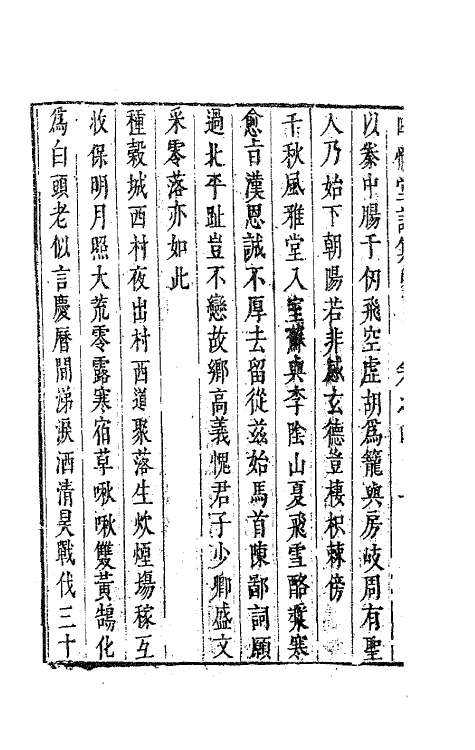 四憶堂詩集 卷之四
以豢中腸千仞飛空虛胡爲籠與房岐周有聖
人乃始下朝陽若非感玄德豈棲枳棘傍
千秋風雅堂入室蘇與李陰山夏飛雪酪漿寒
愈旨漢恩誠不厚去留從茲始馬首陳鄙詞願
過北平趾豈不戀故鄉高義愧君子少卿盛文
采零落亦如此
種穀城西村夜出村西道聚落生炊煙場稼互
收保明月照大荒零露寒宿草啾啾雙黃鵠化
爲白頭老似言慶曆間涕淚洒清昊戰伐三十